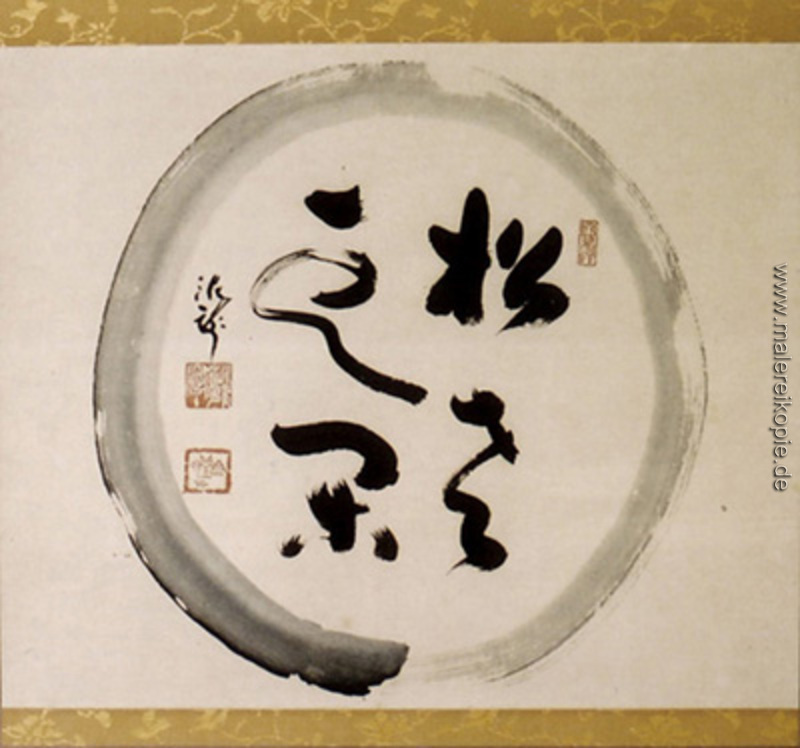 松老
雲閑
泥龍
www.malereikopie.de